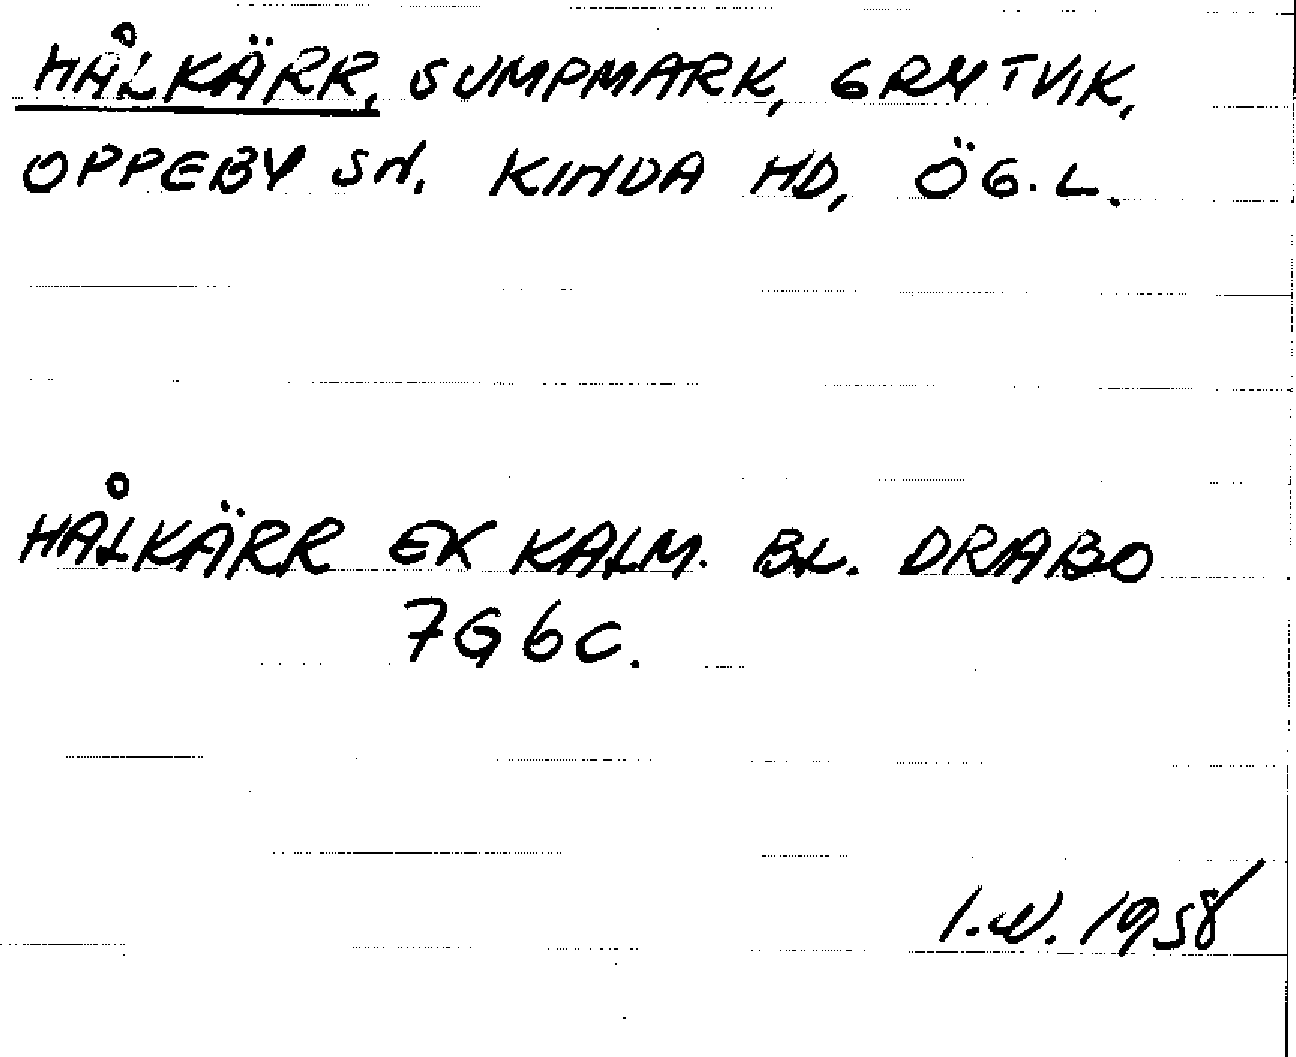 HÅLKÄRR, SUMPMARK, GRYTVIK,
OPPEBY SN. KINDA HD, ÖG.L.
HÅLKÄRR EK KALM. BL. DRABO
7G6C.
I.W. 1958